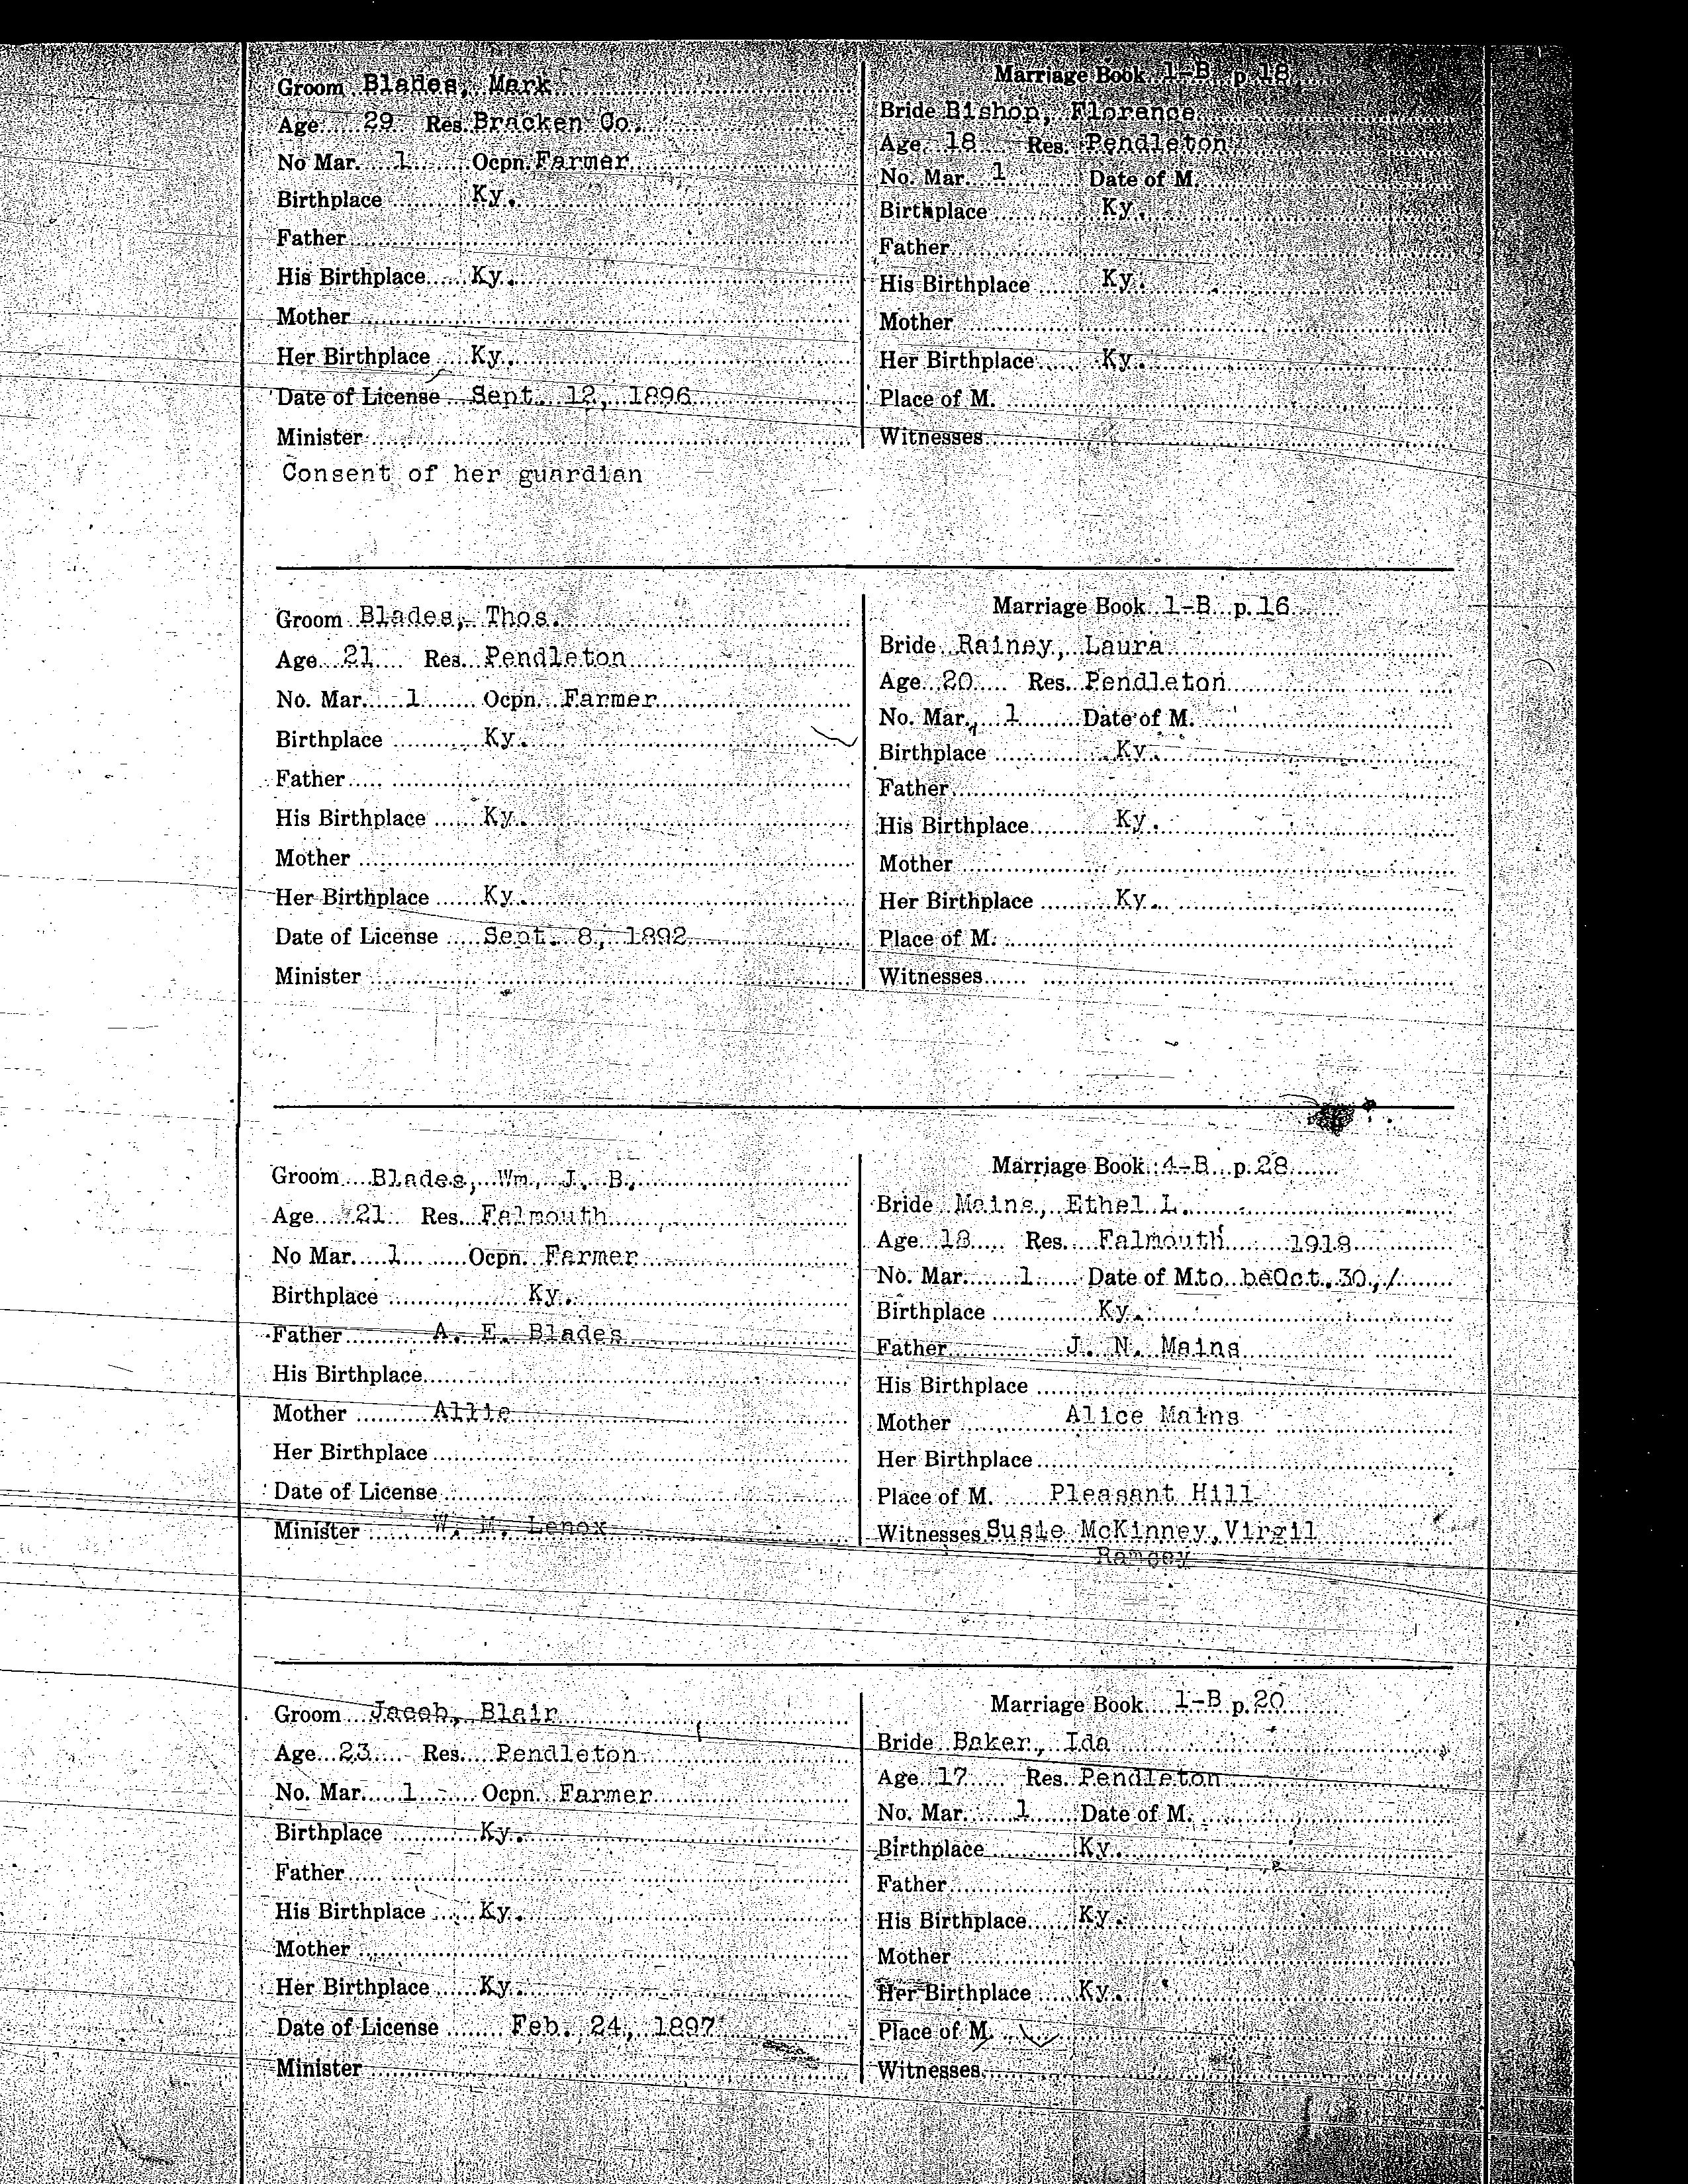 Groom Blades, Mark
Age 29 Res. Bracken Co.
No Mar. 1 Ocpn. Farmer
Birthplace Ky.
Father
His Birthplace Ky.
Mother
Her Birthplace Ky.
Date of License Sept. 12, 1896
Minister
Consent of her guardian
Marriage Book 1-B p. 18
Bride Bishop, Florence
Age 18 Res. Pendleton
No. Mar. 1 Date of M.
Birthplace Ky.
Father
His Birthplace Ky.
Mother
Her Birthplace Ky.
Place of M.
Witnesses
Groom Blades, Thos.
Age 21 Res. Pendleton
No. Mar. 1 Ocpn. Farmer
Birthplace Ky.
Father
His Birthplace Ky.
Mother
Her Birthplace Ky.
Date of License Sept. 8, 1892
Minister
Marriage Book 1-B p. 16
Bride Rainey, Laura
Age 20 Res. Pendleton
No. Mar. 1 Date of M.
Birthplace Ky.
Father
His Birthplace Ky.
Mother
Her Birthplace Ky.
Place of M.
Witnesses
Groom Blades, Wm. J. B.
Age 21 Res. Falmouth
No Mar. 1 Ocpn. Farmer
Birthplace Ky.
Father A. E. Blades
His Birthplace
Mother Allie
Her Birthplace
Date of License
Minister W. M. Lenox
Marriage Book 4-B p. 28
Bride Mains, Ethel L.
Age 18 Res. Falmouth 1918
No. Mar. 1 Date of M to be Oct. 30, /
Birthplace Ky.
Father J. N. Mains
His Birthplace
Mother Alice Mains
Her Birthplace
Place of M. Pleasant Hill
Witnesses Susie McKinney, Virgil
Ramsey
Groom Jacob, Blair
Age 23 Res. Pendleton
No. Mar. 1 Ocpn. Farmer
Birthplace Ky.
Father
His Birthplace Ky.
Mother
Her Birthplace Ky.
Date of License Feb. 24, 1897
Minister
Marriage Book 1-B p. 20
Bride Baker, Ida
Age 17 Res. Pendleton
No. Mar. 1 Date of M.
Birthplace Ky.
Father
His Birthplace Ky.
Mother
Her Birthplace Ky.
Place of M.
Witnesses